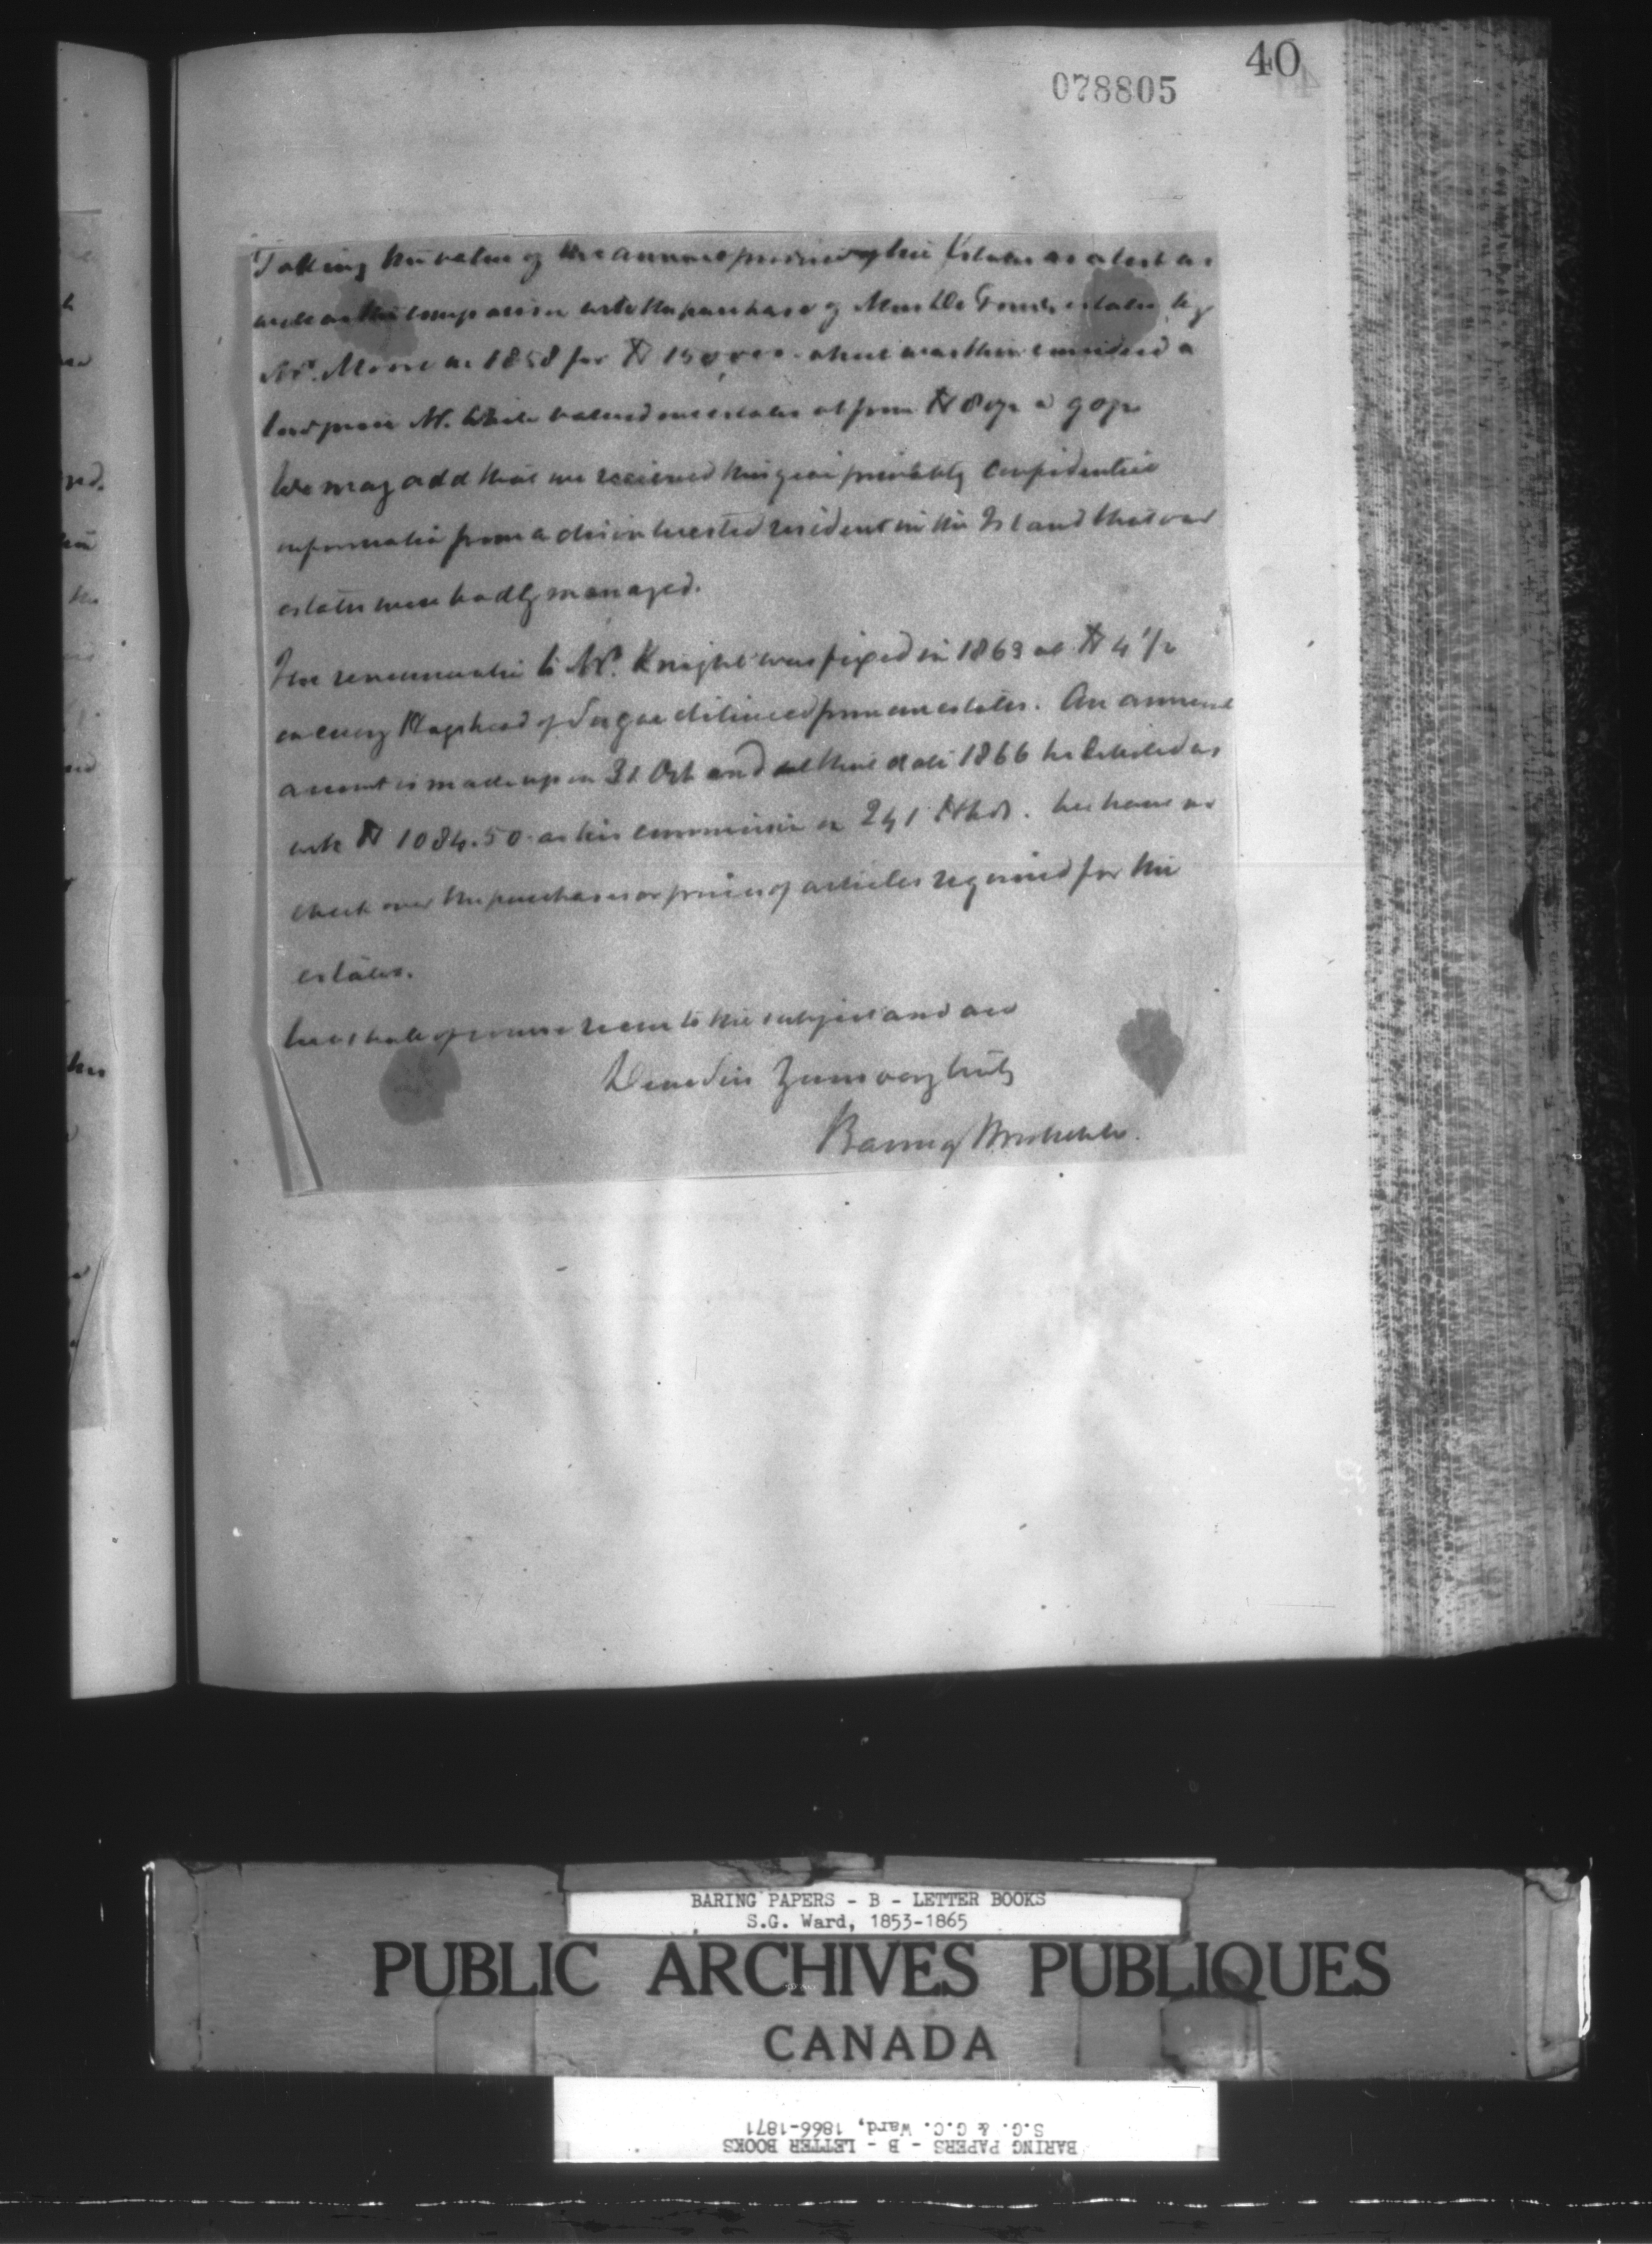 40
078805
Taking the value of the annual produce of the Estates as a test as
well as the comparison with the purchase of estates by
Mr. Moore in 1858 for $150,000 which was then considered a
low price Mr. White valued our estates at from $80/m a 90/m
We may add that we received this year privately confidential
information from a disinterested resident in the Island that our
estates were badly managed.
The remuneration to Mr. Knight was fixed in 1863 at $4 1/2
on every Hogshead of Sugar delivered from our estates. An annual
account is made up on 31 Oct and at that date 1866 he debited us
with $1084.50 as his commission on 241 Hhds. We have no
check over the purchases or prices of articles required for the
estates.
We shall of course recur to the subject and are
Dear Sir Yours very truly
Baring Brothers
BARING PAPERS - B - LETTER BOOKS
S.G. Ward, 1853-1865
PUBLIC ARCHIVES PUBLIQUES
CANADA
BARING PAPERS - B - LETTER BOOKS
S.G. & G.C. Ward, 1866-1871